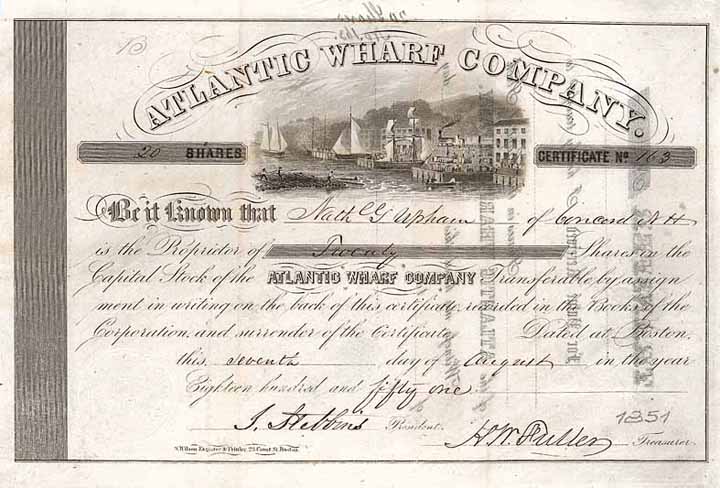 ATLANTIC WHARF COMPANY.
20 SHARES
CERTIFICATE No 163
Be it Known that Nathl G Upham of Concord N H
is the Proprietor of Twenty Shares in the
Capital Stock of the ATLANTIC WHARF COMPANY Transferable by assign
ment in writing on the back of this certificate, recorded in the Books of the
Corporation, and surrender of the Certificate Dated at Boston,
this seventh day of August in the year
Eighteen hundred and fifty one.
1851
J. Stebbins President. H. W. Fuller Treasurer.
N. Wilson Engraver & Printer, 23 Court St. Boston